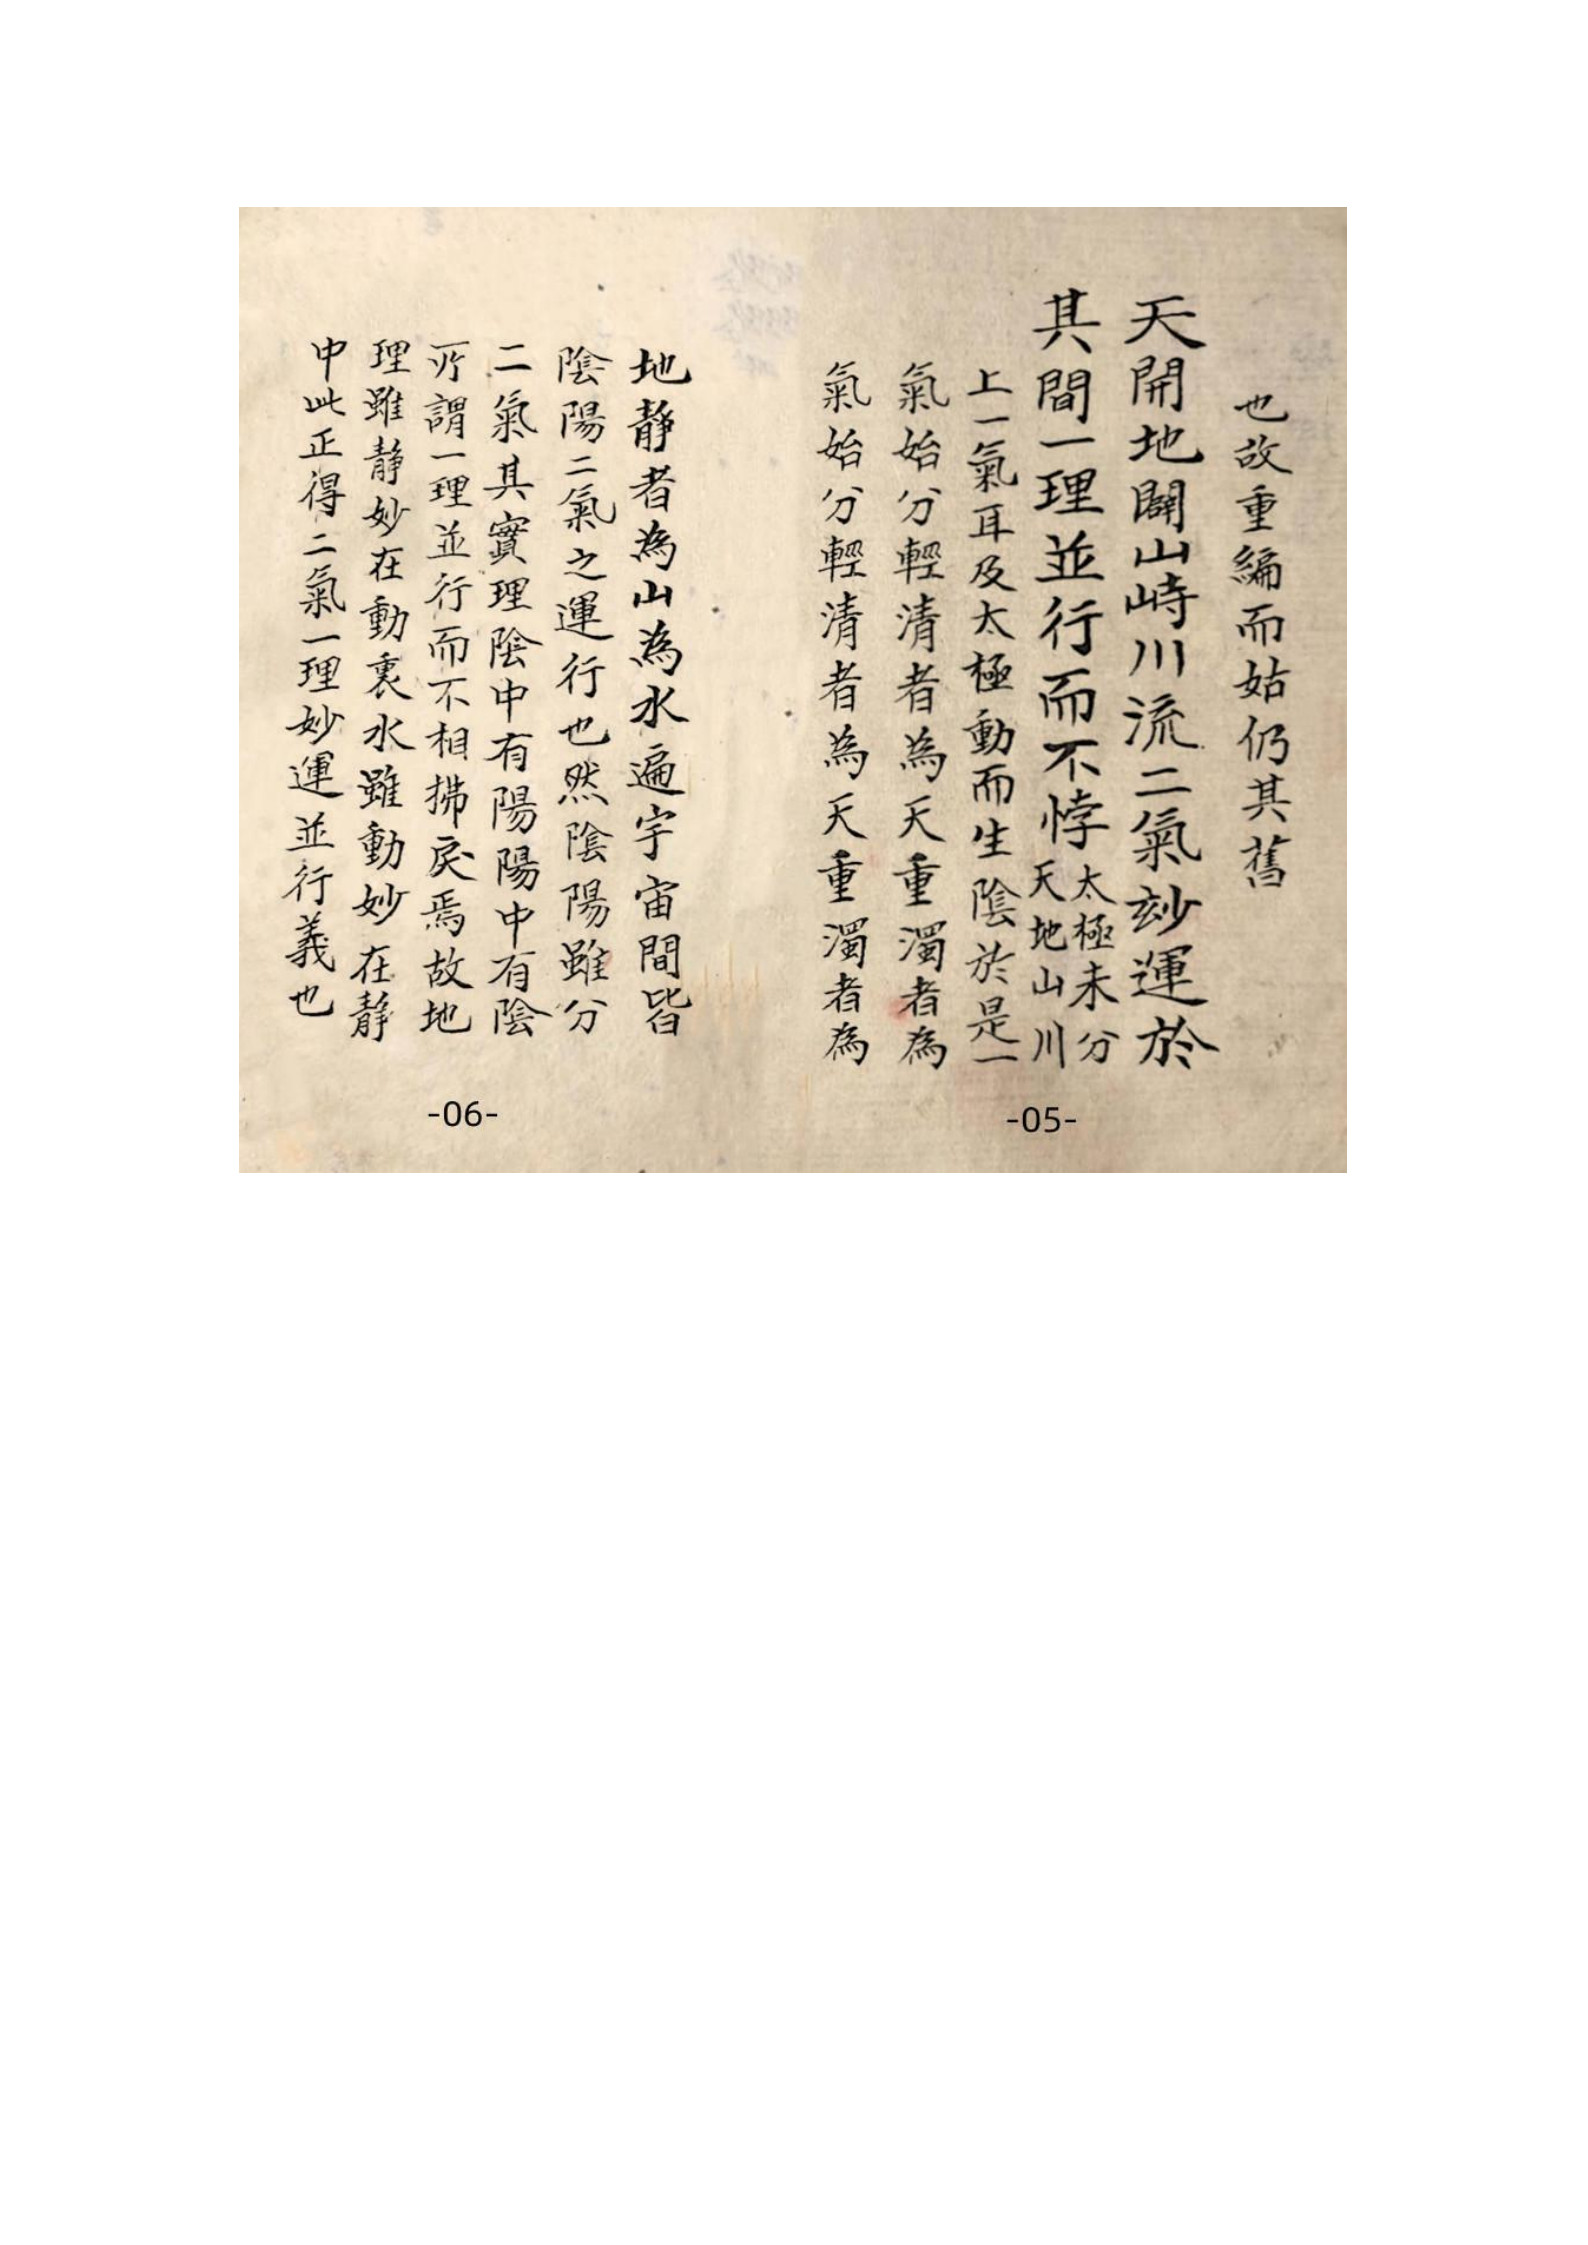 也故重編而姑仍其舊
天開地闢山峙川流二氣玅運於
其間一理並行而不悖太極未分
天地山川
上一氣耳及太極動而生陰於是一
氣始分輕清者為天重濁者為
氣始分輕清者為天重濁者為
-05-
地靜者為山為水遍宇宙間皆
陰陽二氣之運行也然陰陽雖分
二氣其實理陰中有陽陽中有陰
所謂一理並行而不相拂戾焉故地
理雖静妙在動裏水雖動妙在静
中此正得二氣一理妙運並行義也
-06-